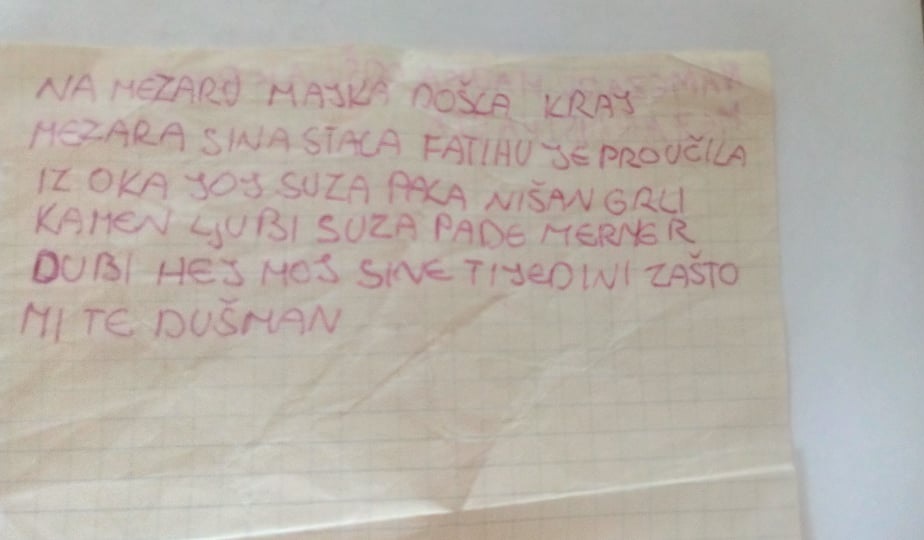 NA MEZARU MAJKA DOŠLA KRAJ
MEZARA SINA STALA FATIHU JE PROUČILA
IZ OKA JOJ SUZA PALA NIŠAN GRLI
KAMEN LJUBI SUZA PADE MERMER
DUBI HEJ MOJ SINE TI JEDINI ZAŠTO
MI TE DUŠMAN